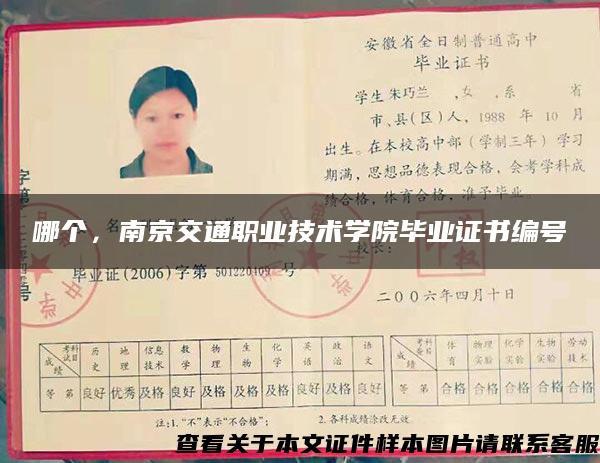 安徽省全日制普通高中
毕业证书
学生 朱巧兰 ,女 ,系 省
市、县(区)人, 1988 年 10 月
出生。在本校高中部(学制三年)学习
期满,思想品德表现合格,会考学科成
绩合格,体育合格,准予毕业。
哪个,南京交通职业技术学院毕业证书编号
毕业证(2006)字第 501220409 号
二00六年四月十日
考科科目 历史 地理 信息技术 数学 物理 生物 化学 英语 政治 语文
成绩
等第 良好 优秀 及格 及格 及格 及格 及格 良好 及格 良好
考科科目 体育 物理实验 化学实验 生物实验 劳动技术
成绩
等第 合格 合格 合格 合格 合格
注:1."不"表示"不合格"; 2.各科成绩涂改无效
查看关于本文证件样本图片请联系客服